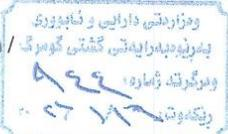 وەزارەتی دارایی و ئابووری
بەڕێوەبەرایەتی گشتی گومرگ /
وەرگرتە ژمارە: ٨٤٤
ڕێکەوت: